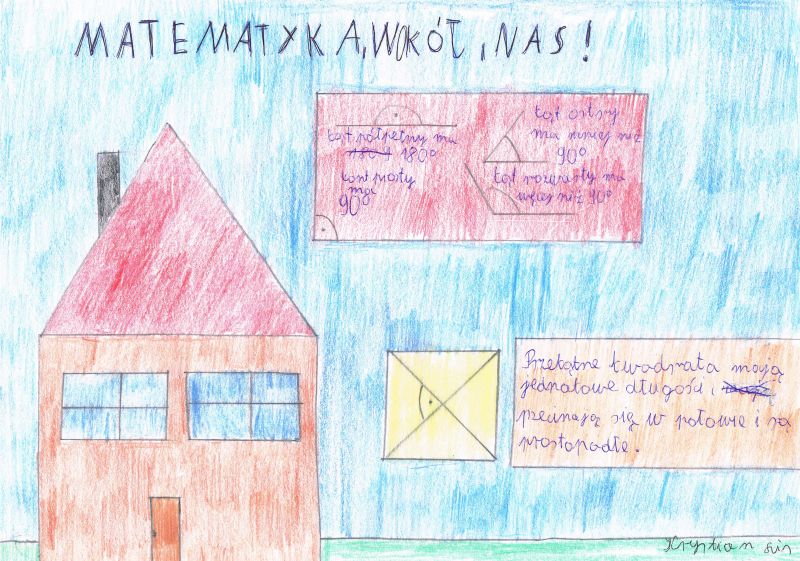 MATEMATYKA WOKÓŁ NAS!
kąt półpełny ma
180° 180°
kąt prosty
ma
90°
kąt ostry
ma mniej niż
90°
kąt rozwarty ma
więcej niż 90°
Przekątne kwadrata mają
jednakowe długości,
przecinają się w połowie i są
prostopadłe.
Krystian